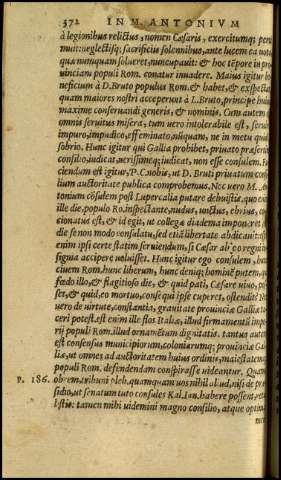 372 IN M. ANTONIVM
à legionibus relictus, nomen Cæsaris, exercitumq; pero
muit: neglectisq; sacrificijs solennibus, ante lucem ea uota,
quæ nunquam solueret, nuncupauit: & hoc tēpore in pro
uinciam populi Rom. conatur inuadere. Maius igitur be
neficium à D. Bruto populus Rom. & habet, & exspectat,
quàm maiores nostri acceperunt à L. Bruto, principe huius
maxime conseruandi generis, & nominis. Cum autem
omnis seruitus misera, tum uero intolerabile est, seruire
impuro, impudico, effeminato, nunquam, ne in metu quidem
sobrio. Hunc igitur qui Gallia prohibet, priuato præsertim
consilio, iudicat, uerissimeq; iudicat, non esse consulem. Fa
ciendum est igitur, P. C. nobis, ut D. Bruti priuatum con
silium auctoritate publica comprobemus. Nec uero M. An
tonium cōsulem post Lupercalia putare debuistis. quo enim
ille die, populo Ro. inspectante, nudus, unctus, ebrius, con
cionatus est, & id egit, ut collegæ diadema imponeret, eo
die se non modo consulatu, sed etiā libertate abdicauit. esset
enim ipsi certe statim seruiendum, si Cæsar ab eo regni in
signia accipere uoluisset. Hunc igitur ego consulem, hunc
ciuem Rom. hunc liberum, hunc deniq; hominē putem, qui
fœdo illo, & flagitioso die, & quid pati, Cæsare uiuo, pos
set, & quid, eo mortuo, consequi ipse cuperet, ostendit? Nec
uero de uirtute, constantia, grauitate prouinciæ Galliæ ta
ceri potest. est enim ille flos Italiæ, illud firmamentū impe
rij populi Rom. illud ornamētum dignitatis. tantus autem
est consensus municipiorum, coloniarumq; prouinciæ Gal
liæ, ut omnes ad auctoritatem huius ordinis, maiestatemq;
populi Rom. defendendam conspirasse uideantur. Quam
P. 186. obrem, tribuni pleb. quamquam uos nihil aliud, nisi de præ
sidio, ut senatum tuto consules Kal. Ian. habere possent, retu
listis: tamen mihi uidemini magno consilio, atque optima